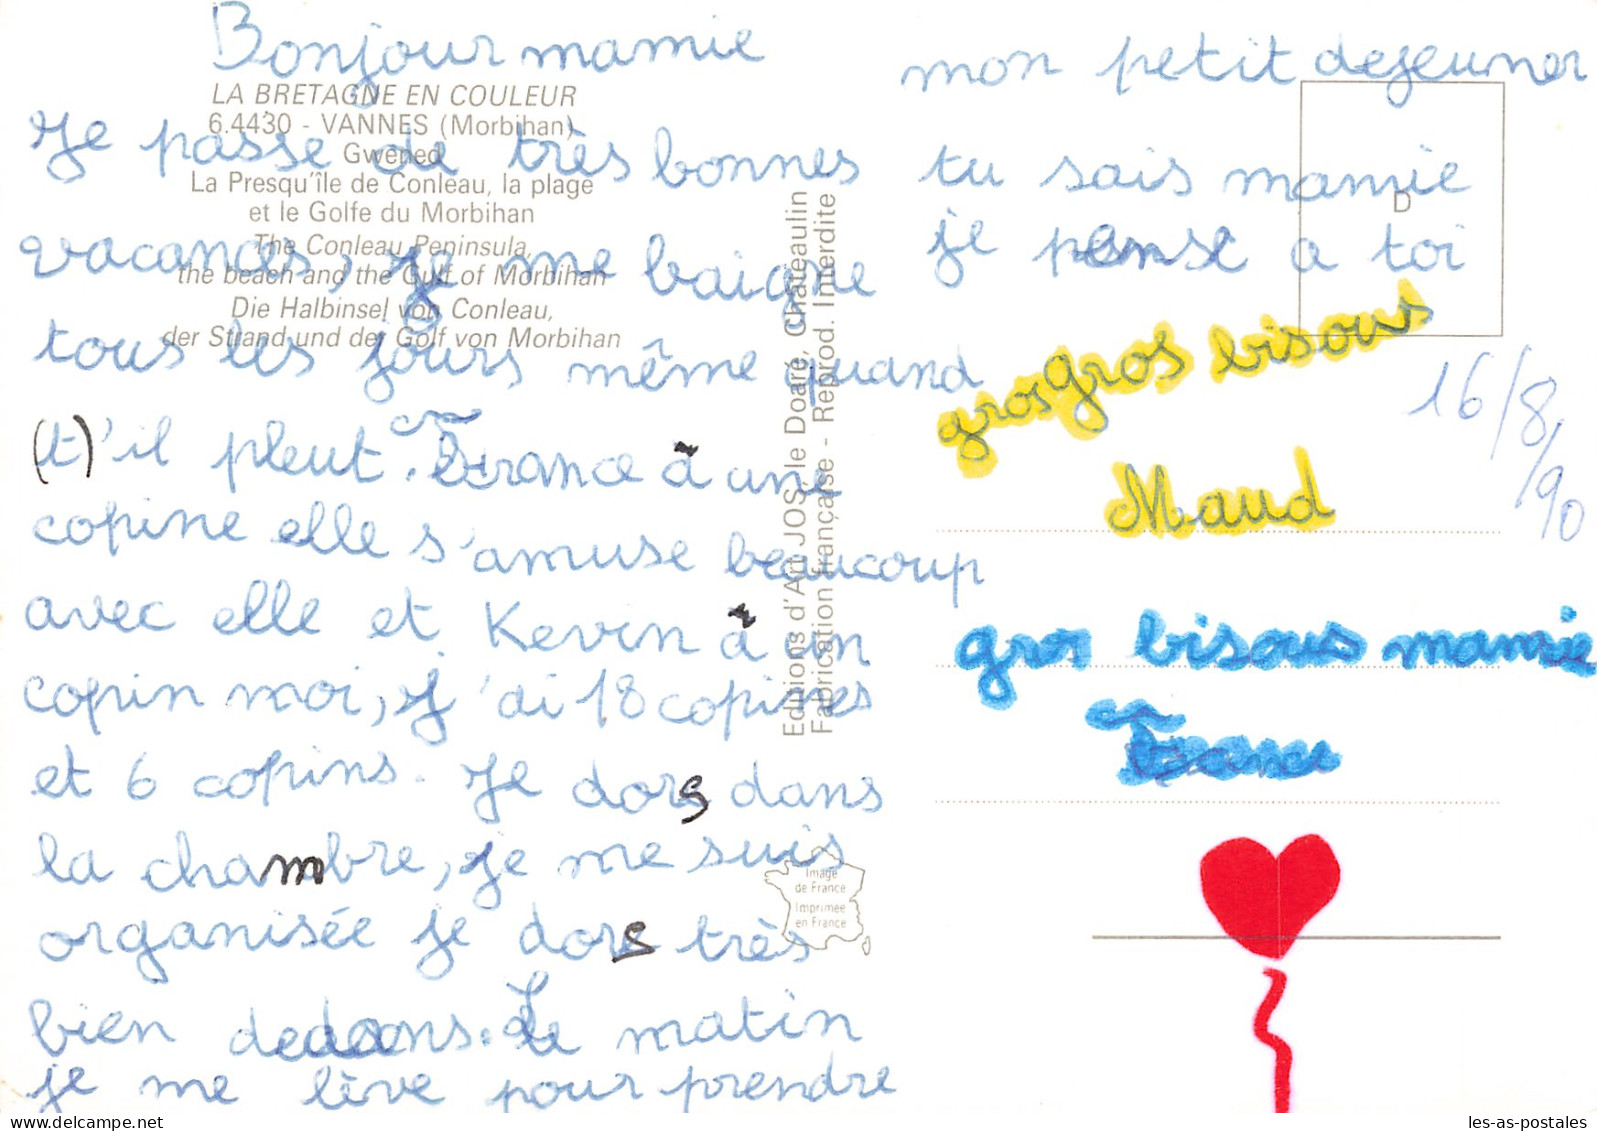 Bonjour mamie
LA BRETAGNE EN COULEUR
6.4430 - VANNES (Morbihan)
Gwened
La Presqu'île de Conleau, la plage
et le Golfe du Morbihan
The Conleau Peninsula,
the beach and the Gulf of Morbihan
Die Halbinsel von Conleau,
der Strand und der Golf von Morbihan
Je passe de très bonnes
vacances, je me baigne
tous les jours même quand
(t)'il pleut. France à une
copine elle s'amuse beaucoup
avec elle et Kevin à un
copin moi, j'ai 18 copines
et 6 copins. Je dors dans
la chambre, je me suis
organisée je dors très
bien dedans. Le matin
je me lève pour prendre
Editions d'Art JOS le Doaré, Châteaulin
Fabrication française - Reprod. Interdite
Image
de France
Imprimée
en France
mon petit dejeuner
tu sais mamie
D
je pense a toi
gros gros bisous
16/8/90
Maud
gros bisous mamie
France
les-as-postales